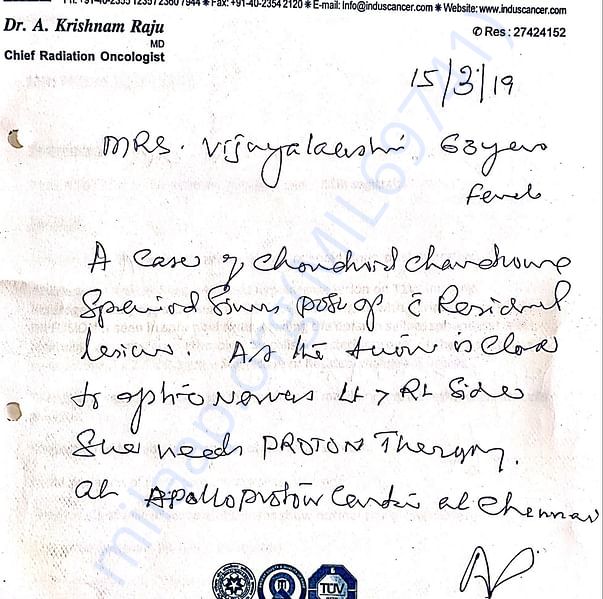 Ph: +91-40-2355 1235 / 2360 7944 * Fax: +91-40-2354 2120 * E-mail: Info@induscancer.com * Website: www.induscancer.com
Dr. A. Krishnam Raju
MD
Chief Radiation Oncologist
✆ Res : 27424152
15/3/19
MRS. Vijayalaxshmi 63 years
female
A case of chondroid chondroma
Sphenoid Sinus post op c̄ Residual
lesion. As the tumor is close
to optic nerves Lt > Rt Side
She needs PROTON Therapy.
at Apollo proton Center at Chennai
milaap.org(MIL69741)
TÜV